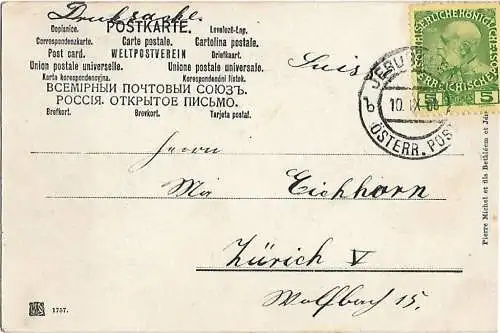 Drucksache.
POSTKARTE.
Dopisnice. Levelezö-Lap.
Correspondenzkarte. Carte postale. Cartolina postale.
Post card. WELTPOSTVEREIN Briefkaart.
Union postale universelle. Unione postale universale.
Karta korespondencyjna. Korespondenčni listek.
ВСЕМІРНЫЙ ПОЧТОВЫЙ СОЮЗЪ.
РОССІЯ. ОТКРЫТОЕ ПИСЬМО.
Brefkort. Brevkort. Tarjeta postal.
Suisse
ÖSTERR. POST
5
Herrn
Eichhorn
Zürich V
Wolfbach 15.
Pierre Michel et fils Bethléem et
1757.